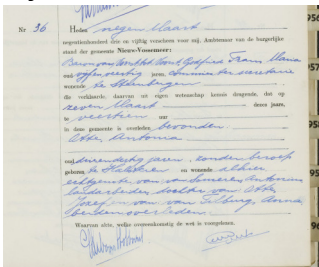 Nr 36 Heden negen Maart
negentienhonderd drie en vijftig verscheen voor mij, Ambtenaar van de burgerlijke
stand der gemeente Nieuw-Vossemeer:
Frans, Maria
oud vijfenveertig jaren, commies ter secretarie
wonende te Steenbergen
die verklaarde, daarvan uit eigen wetenschap kennis dragende, dat op
zeven Maart dezes jaars,
te veertien uur
in deze gemeente is overleden, bevonden:
Otte, Antonia
oud jaren, zonder beroep
geboren te Halsteren en wonende alhier
echtgenote van van Someren Antonius
landarbeider, dochter van Otte
Jozef en van van Tilburg, Anna,
beiden overleden.
Waarvan akte, welke overeenkomstig de wet is voorgelezen.